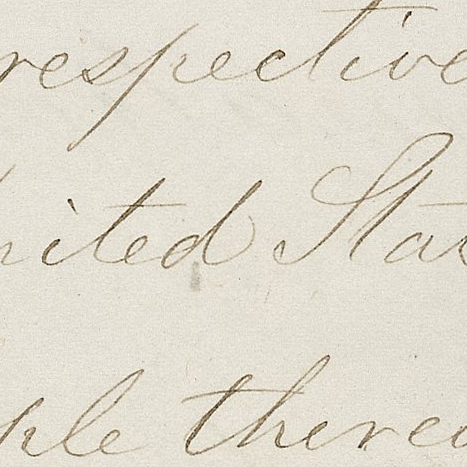 respective
nited Stat
ple there